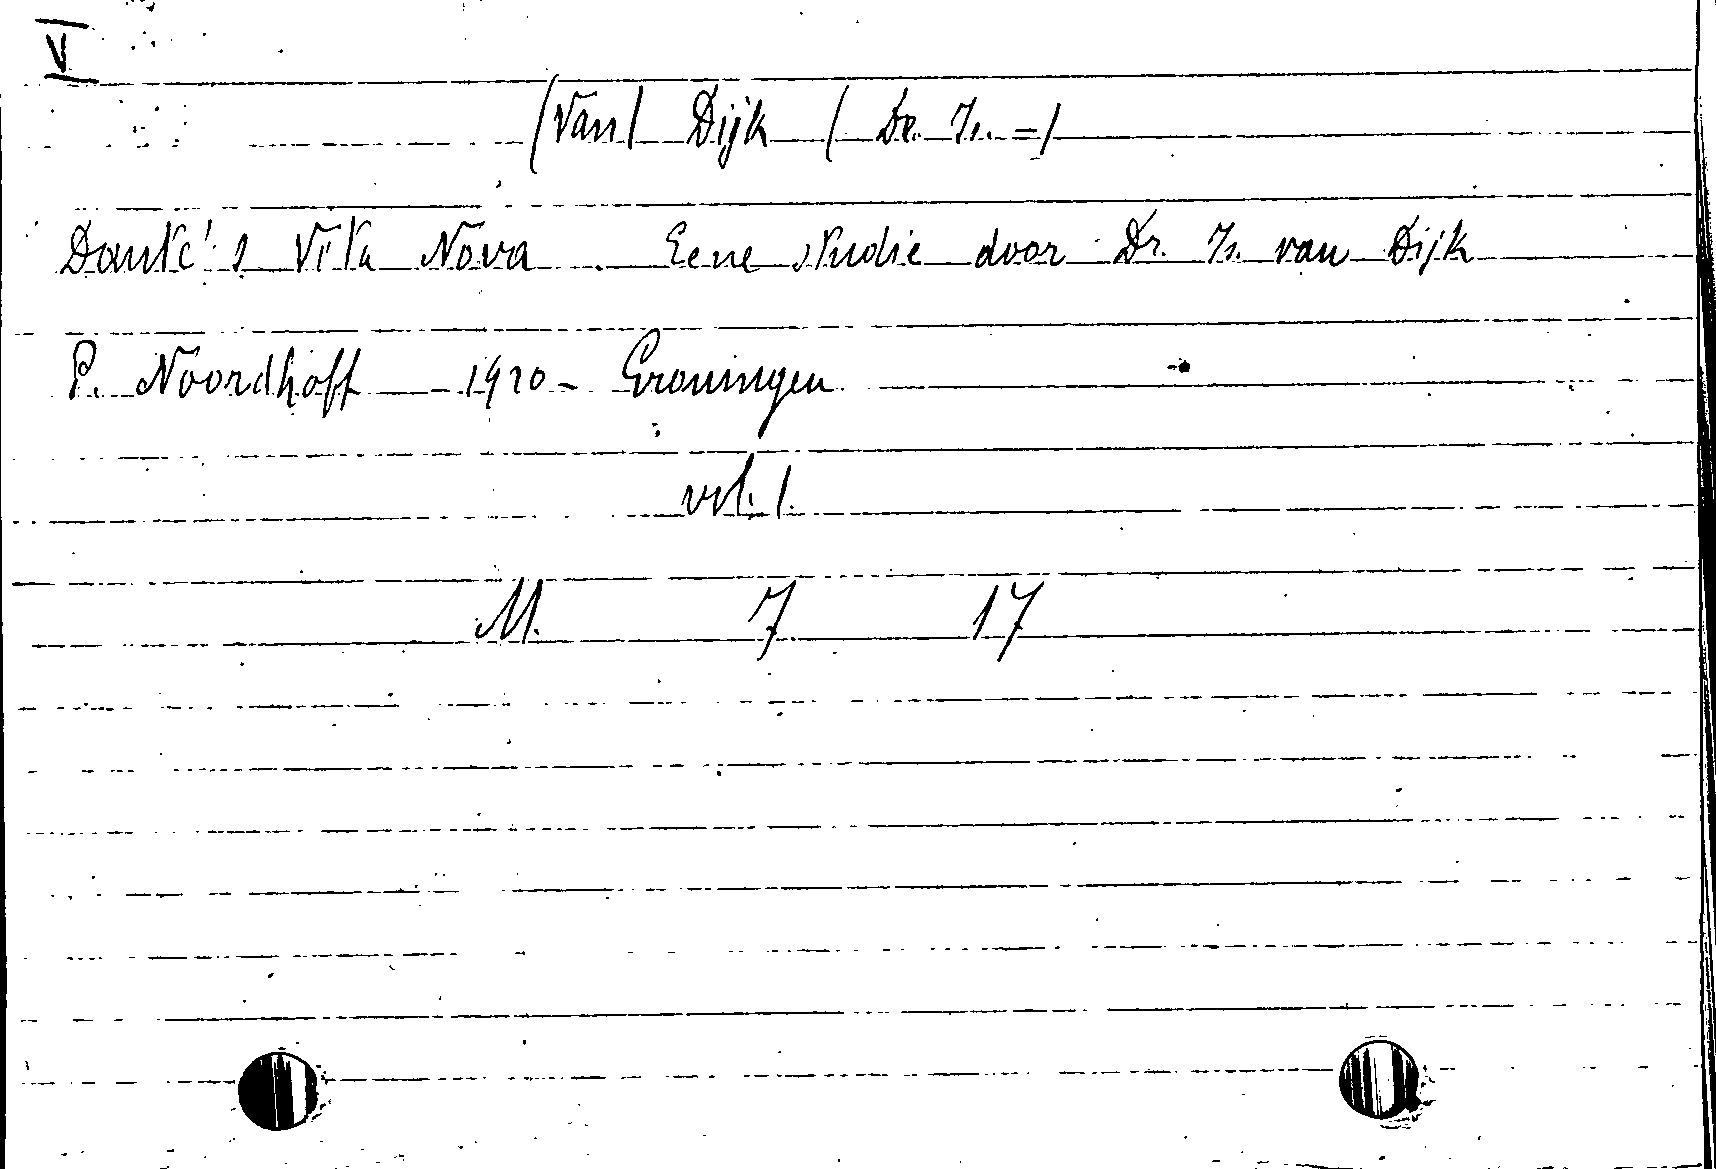 V
(Van) Dijk ( Dr. Is. =)
Dante's Vita Nova. Eene studie door Dr. Is. van Dijk
P. Noordhoff - 1920 - Groningen
vol. 1.
M. 7 17